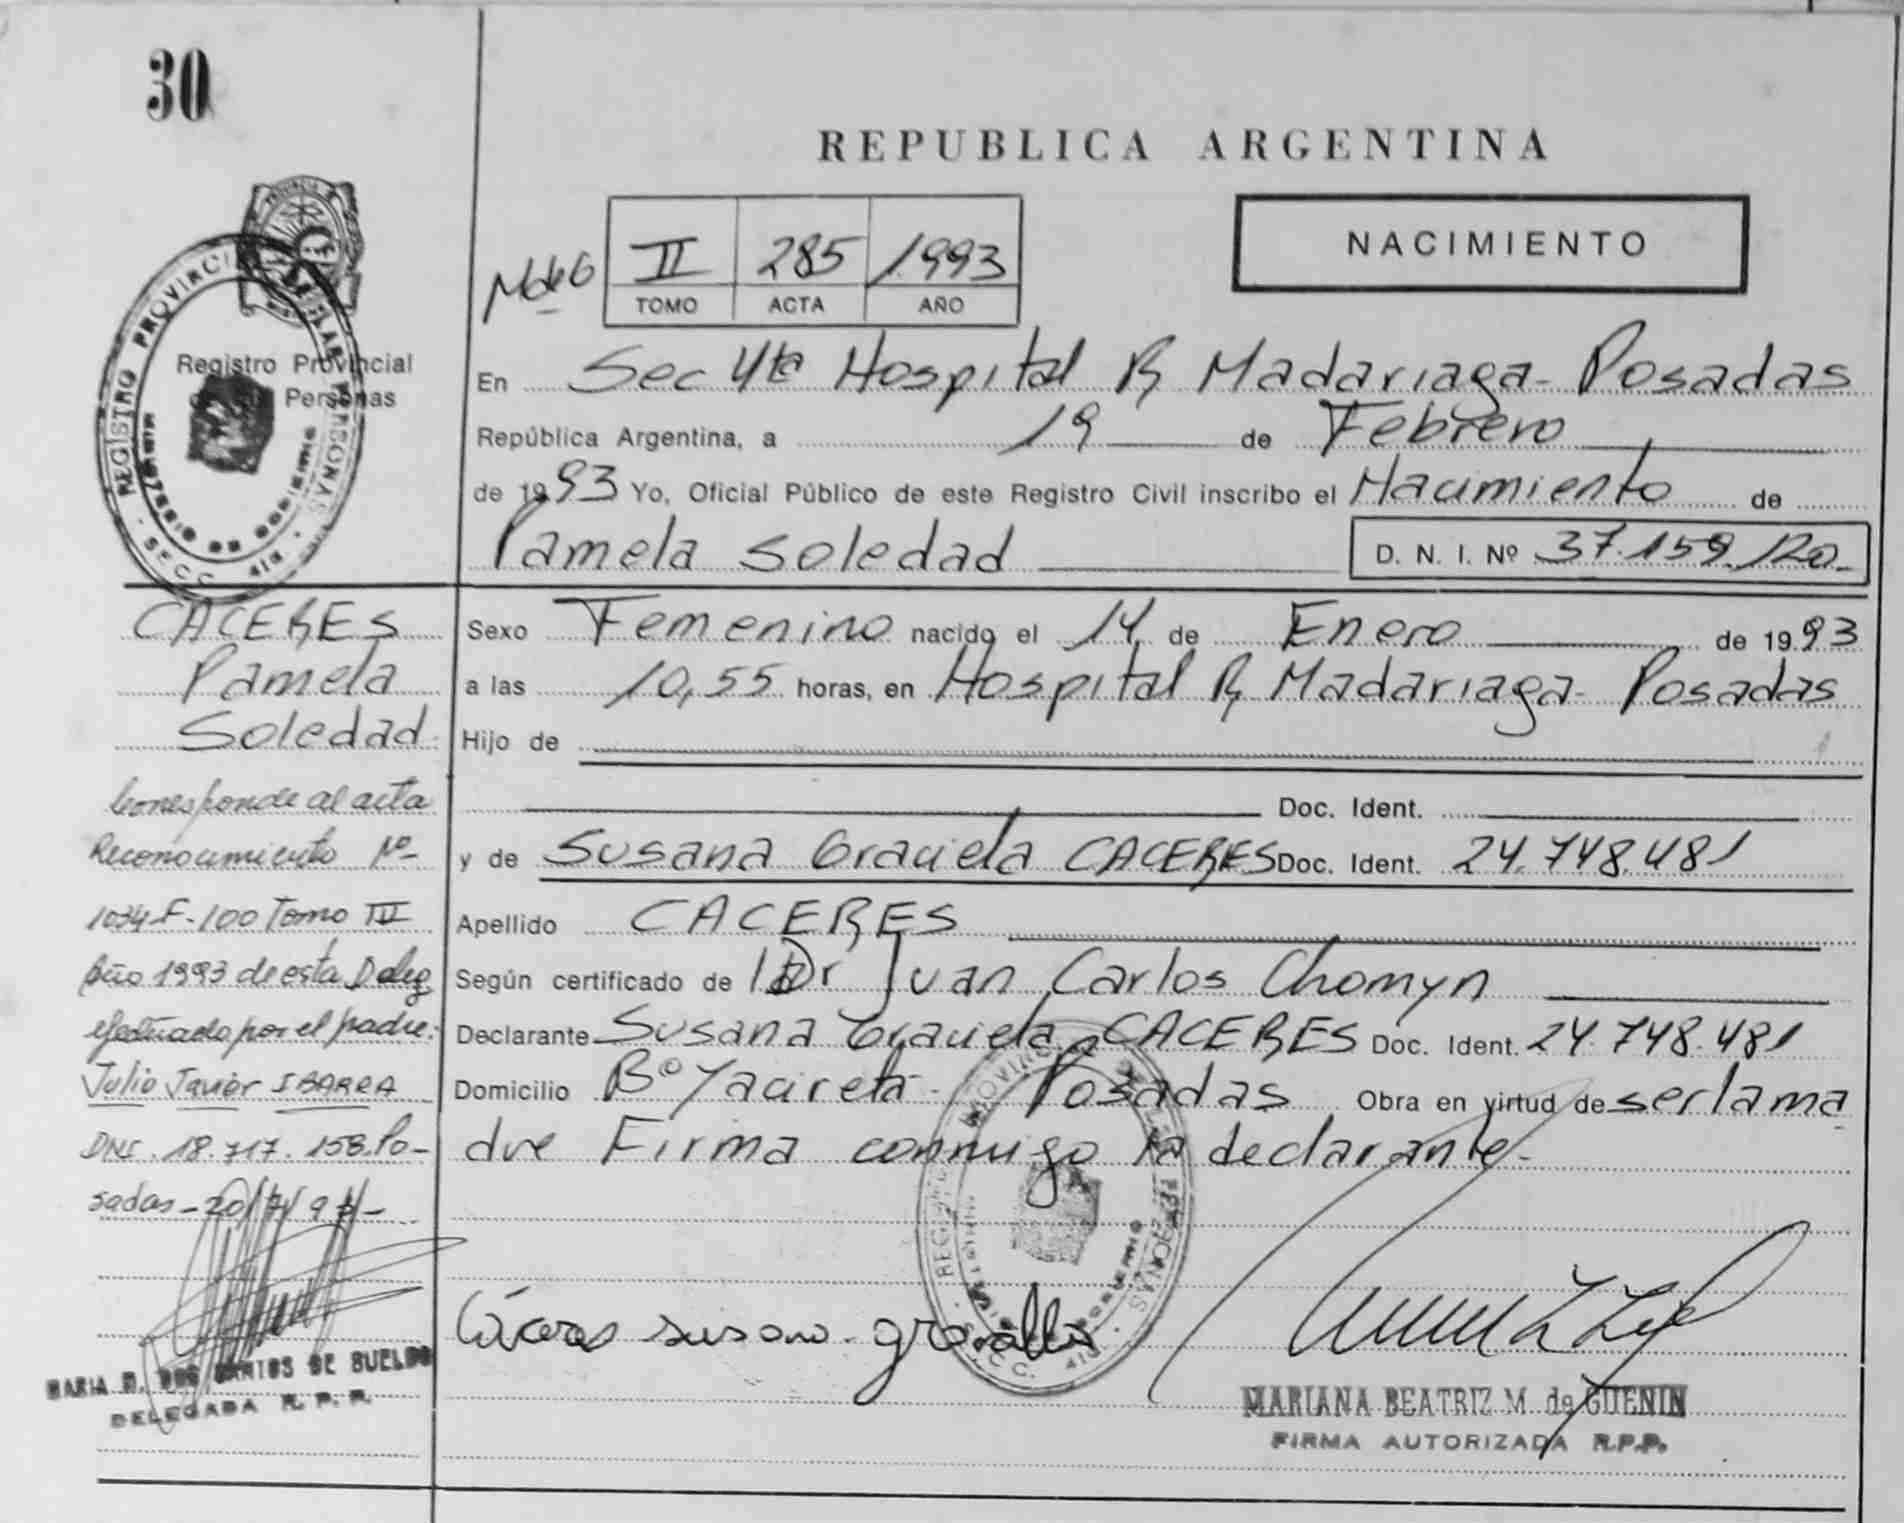 30
REPUBLICA ARGENTINA
NACIMIENTO
II 285 1993
TOMO ACTA AÑO
REGISTRO PROVINCIAL DE LAS PERSONAS
SECC. 4ta
Registro Provincial
de las Personas
En Sec 4ta Hospital R Madariaga - Posadas
República Argentina, a 19 de Febrero
de 1993 Yo, Oficial Público de este Registro Civil inscribo el Nacimiento de
Pamela Soledad D. N. I. Nº 37.159.120.
CACERES
Pamela
Soledad
Corresponde al acta
Reconocimiento Nº
1034 F-100 Tomo III
Año 1993 de esta Deleg
efectuado por el padre:
Julio Javier IBARRA
DNI. 18.717.158. Po-
sadas - 20/7/93 -
MARIA D. DOS SANTOS DE SUELDO
DELEGADA R. P. P.
Sexo Femenino nacido el 14 de Enero de 1993
a las 10,55 horas, en Hospital R Madariaga - Posadas
Hijo de
Doc. Ident.
y de Susana Graciela CACERES Doc. Ident. 24.748.481
Apellido CACERES
Según certificado de Dr Juan Carlos Chomyn
Declarante Susana Graciela CACERES Doc. Ident. 24.748.481
Domicilio Bº Yacireta - Posadas Obra en virtud de ser la ma
dre Firma conmigo la declarante -
Cáceres susana graciela
MARIANA BEATRIZ M. de GUENIN
FIRMA AUTORIZADA R.P.P.